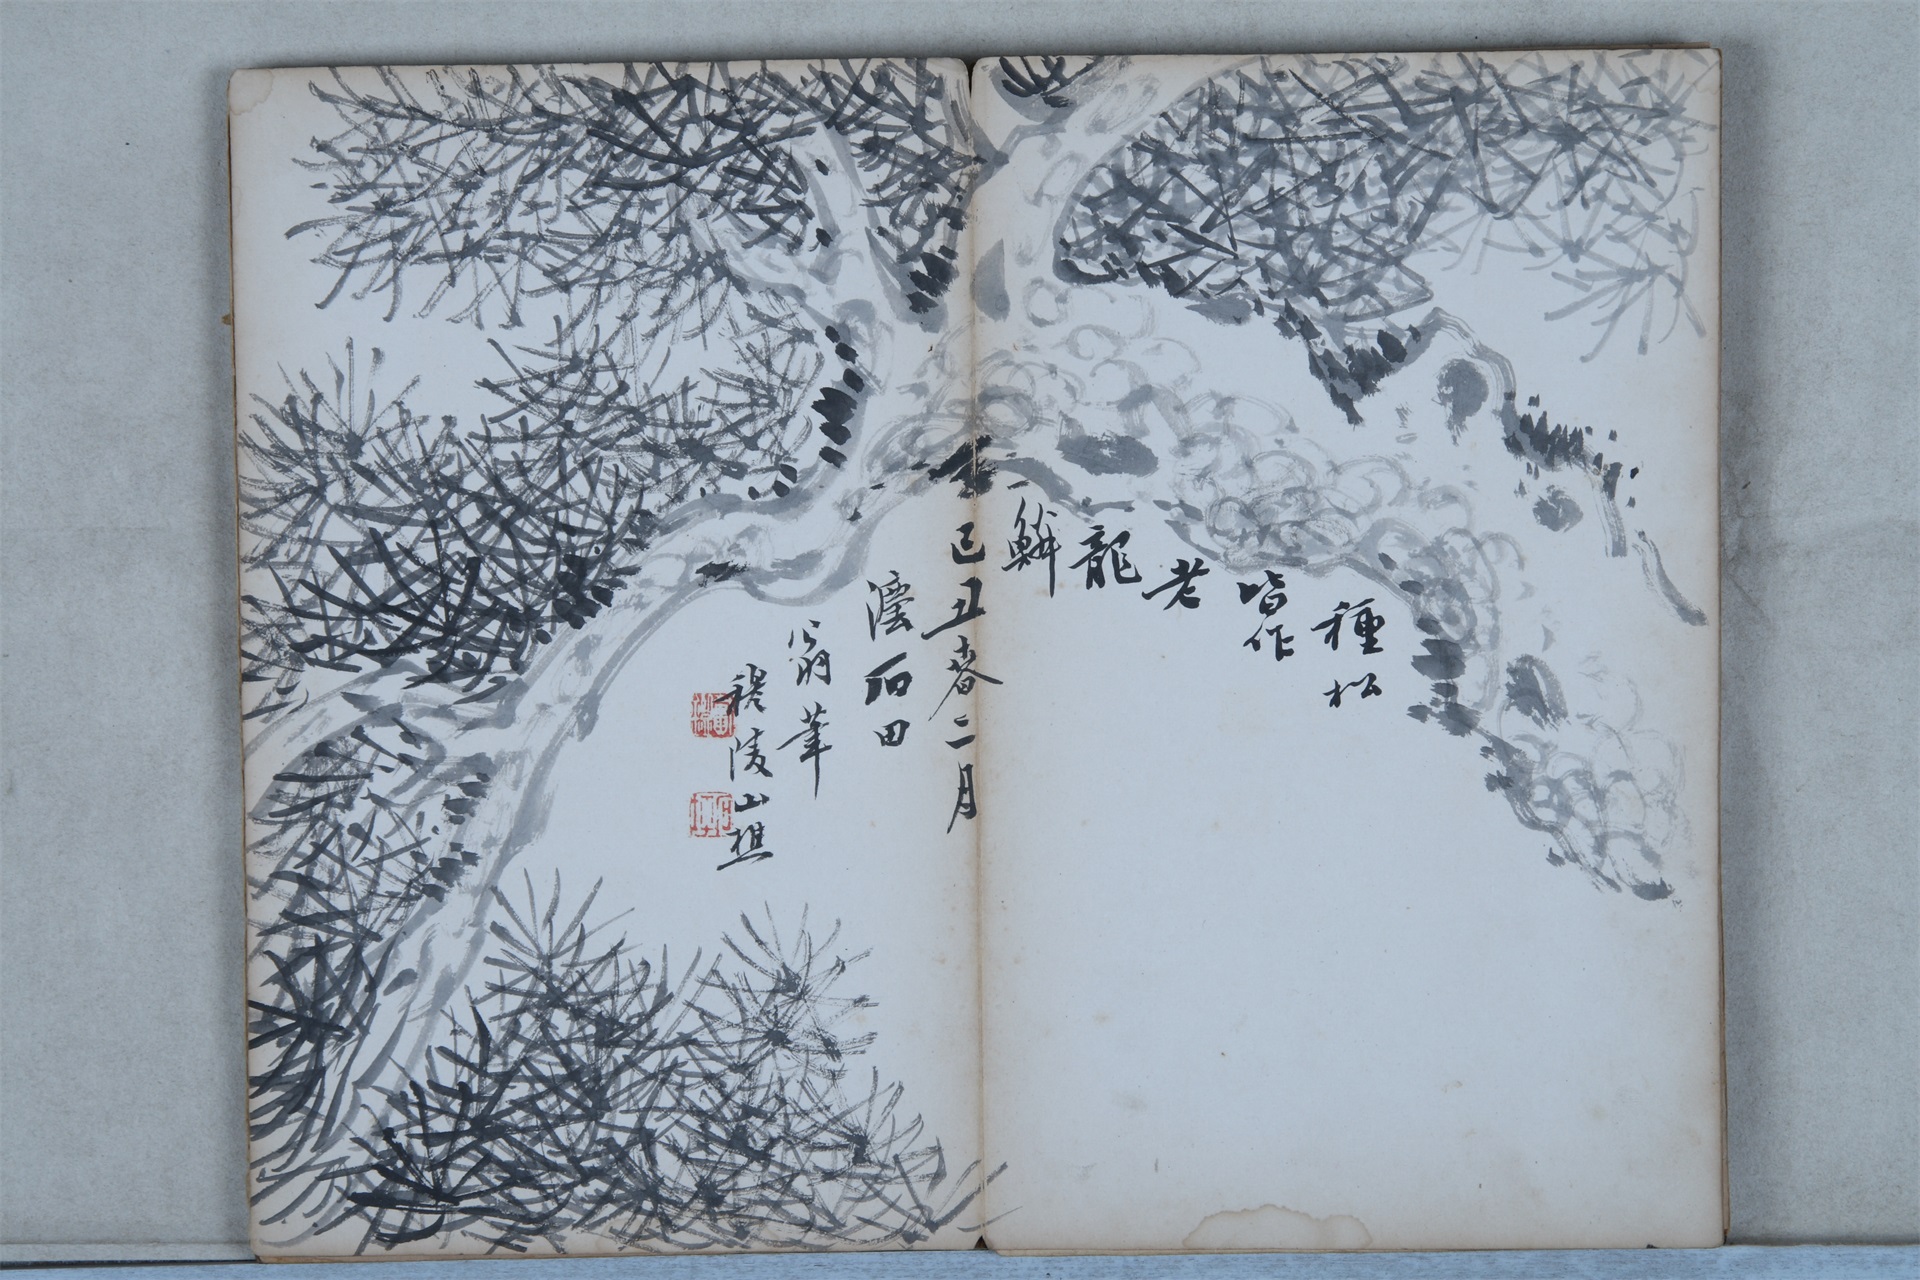 種松
皆作
老
龍
鱗
己丑春二月
灋石田
翁筆
穆陵山樵